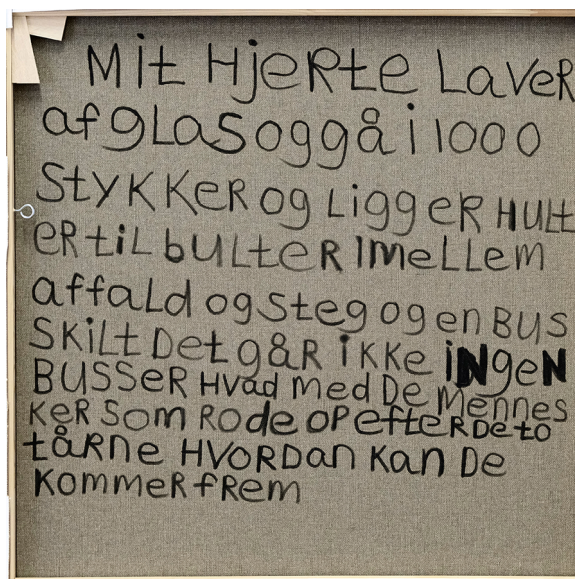 Mit HjeRte LaveR
af gLaS og gå i 1000
StyKKeR og Ligg eR HuLt
eR tiL buLteR IMeLLem
affaLd og Steg og en BUS
SKiLt Det gåR iKKe iNgeN
BUSSeR Hvad med De Mennes
KeR Som Rode oP efteR De to
tåRne HVORDan Kan De
KommeR fRem